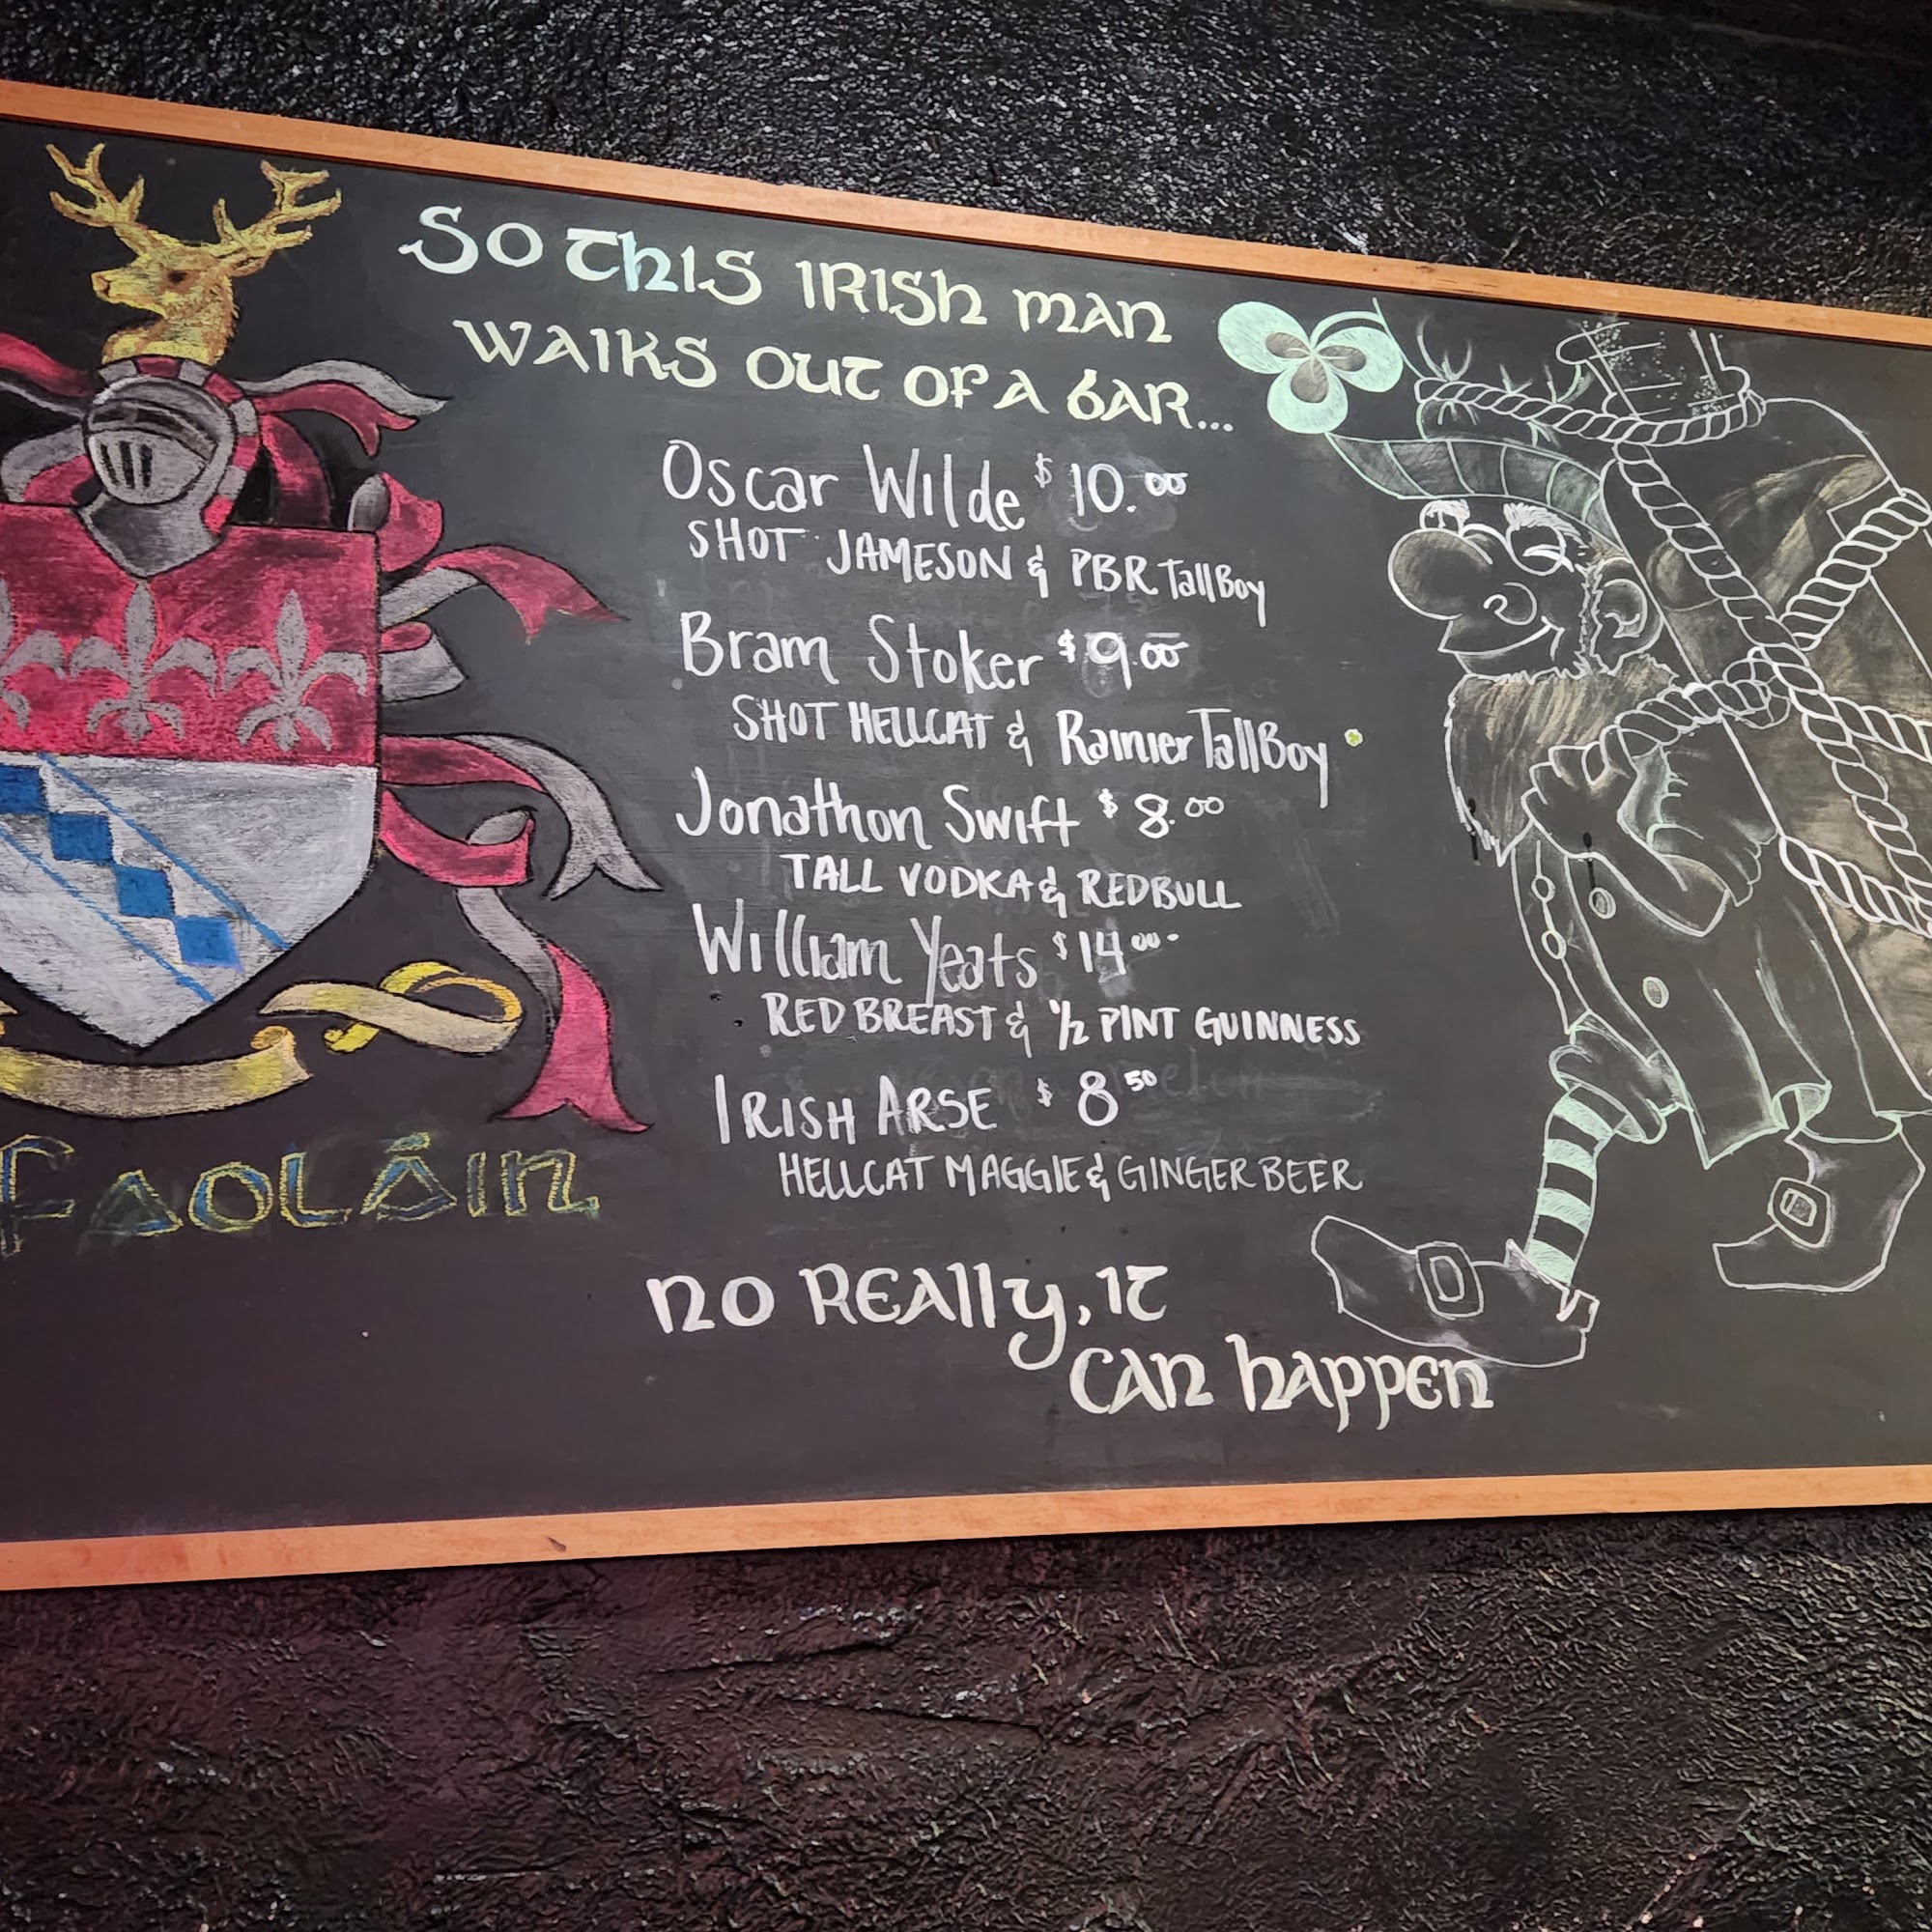 So This Irish Man
Walks Out Of A Bar...
Oscar Wilde $10.00
SHOT JAMESON & PBR TallBoy
Bram Stoker $9.00
SHOT HELLCAT & Rainier TallBoy
Jonathon Swift $8.00
TALL VODKA & REDBULL
William Yeats $14.00
RED BREAST & 1/2 PINT GUINNESS
IRISH ARSE $8.50
HELLCAT MAGGIE & GINGER BEER
FAOLÁIN
No Really, It
Can Happen